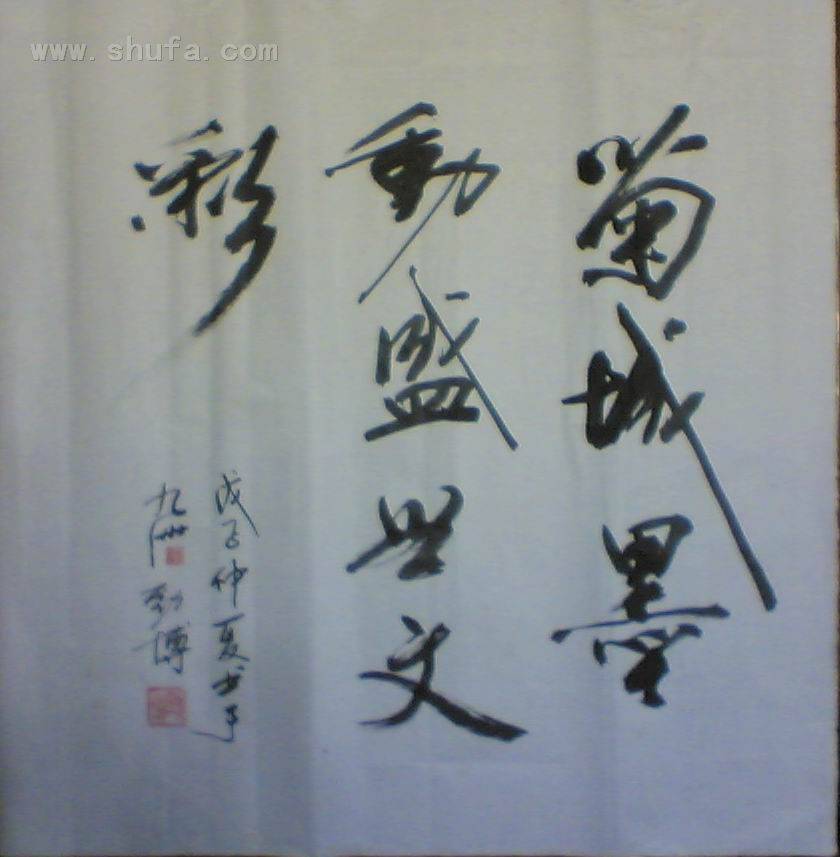 www.shufa.com
菊城墨
動盛世文
彩
戊子仲夏书于
九洲劲博